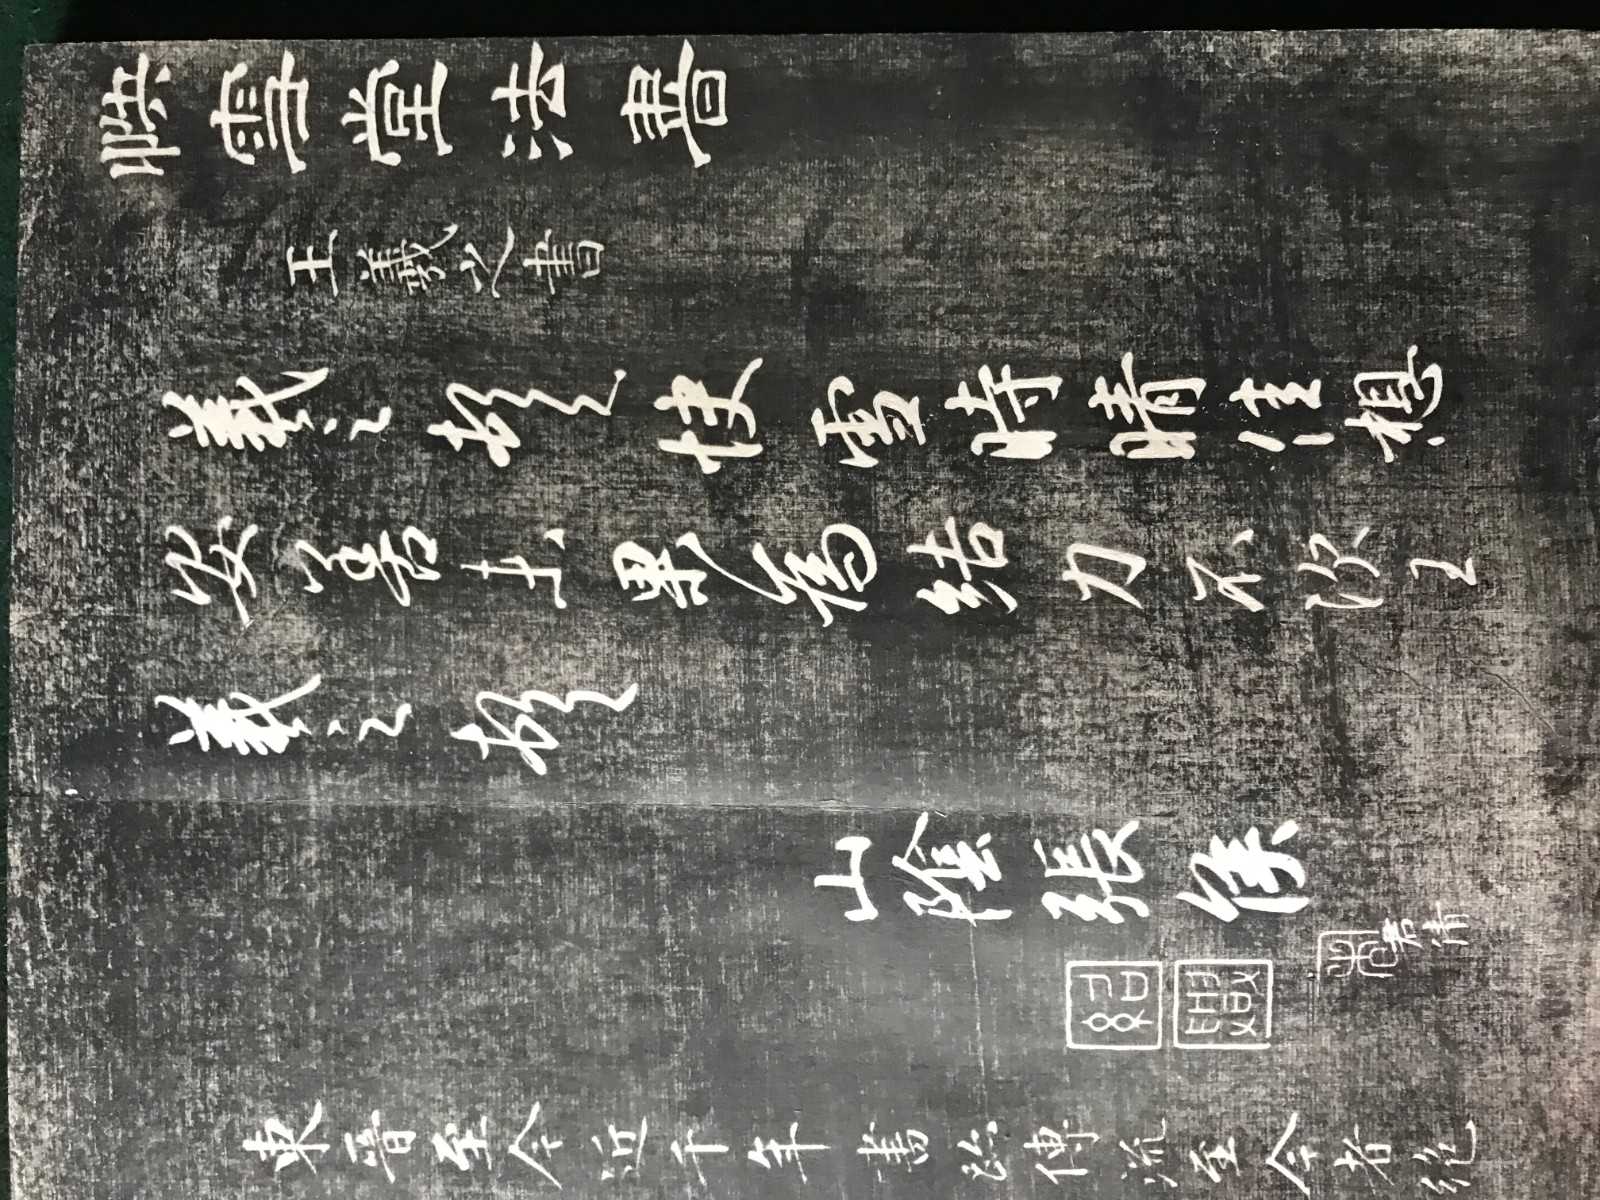 快雪堂法書
王羲之書
羲之頓首快雪時晴佳想
安善未果為結力不次王
羲之頓首
山陰張侯
紹興
君清
東晉至今近千年書跡傳流至今者絕